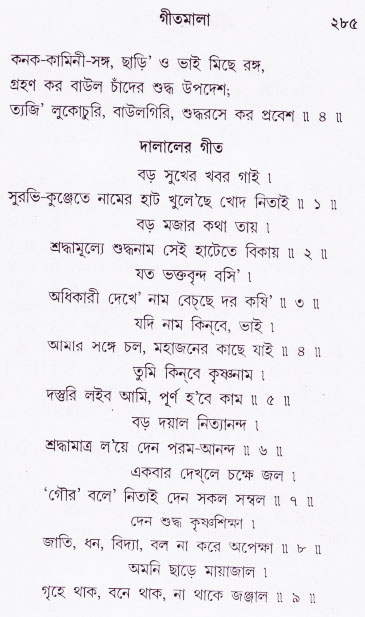 গীতমালা ২৮৫
কনক-কামিনী-সঙ্গ, ছাড়ি' ও ভাই মিছে রঙ্গ,
গ্রহণ কর বাউল চাঁদের শুদ্ধ উপদেশ;
ত্যজি' লুকোচুরি, বাউলগিরি, শুদ্ধরসে কর প্রবেশ ॥ ৪ ॥
দালালের গীত
বড় সুখের খবর গাই ।
সুরভি-কুঞ্জেতে নামের হাট খুলে'ছে খোদ নিতাই ॥ ১ ॥
বড় মজার কথা তায় ।
শ্রদ্ধামূল্যে শুদ্ধনাম সেই হাটেতে বিকায় ॥ ২ ॥
যত ভক্তবৃন্দ বসি' ।
অধিকারী দেখে' নাম বেচ্ছে দর কষি' ॥ ৩ ॥
যদি নাম কিন্‌বে, ভাই ।
আমার সঙ্গে চল, মহাজনের কাছে যাই ॥ ৪ ॥
তুমি কিন্‌বে কৃষ্ণনাম ।
দস্তুরি লইব আমি, পূর্ণ হ'বে কাম ॥ ৫ ॥
বড় দয়াল নিত্যানন্দ ।
শ্রদ্ধামাত্র ল'য়ে দেন পরম-আনন্দ ॥ ৬ ॥
একবার দেখ্‌লে চক্ষে জল ।
'গৌর' বলে' নিতাই দেন সকল সম্বল ॥ ৭ ॥
দেন শুদ্ধ কৃষ্ণশিক্ষা ।
জাতি, ধন, বিদ্যা, বল না করে অপেক্ষা ॥ ৮ ॥
অমনি ছাড়ে মায়াজাল ।
গৃহে থাক, বনে থাক, না থাকে জঞ্জাল ॥ ৯ ॥